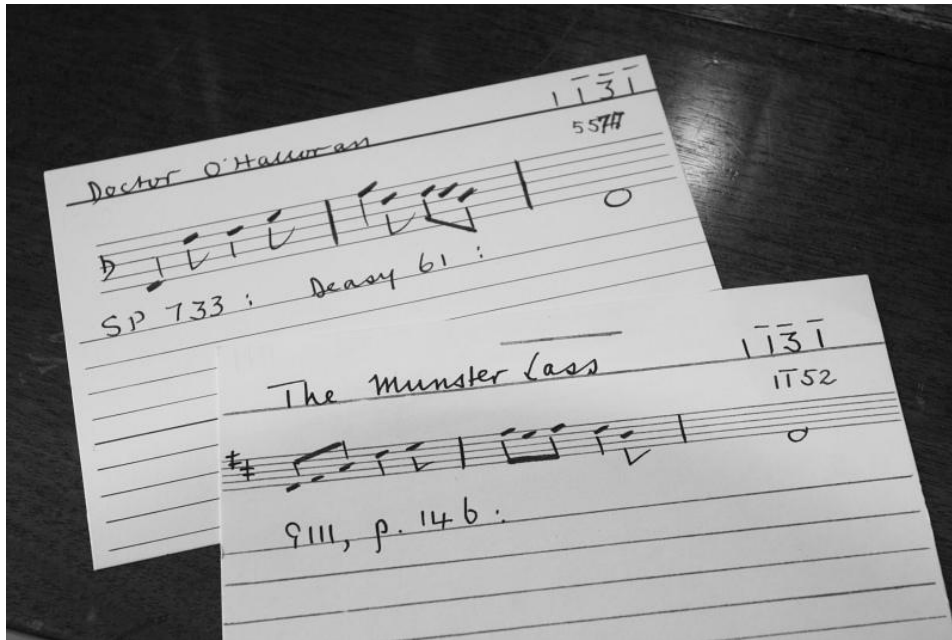 1 1̅ 3̅ 1̅
Doctor O'Halloran
SP 733 : Deasy 61 :
1 1̅ 3̅ 1̅
The Munster Lass
11̅52
p. 146 :